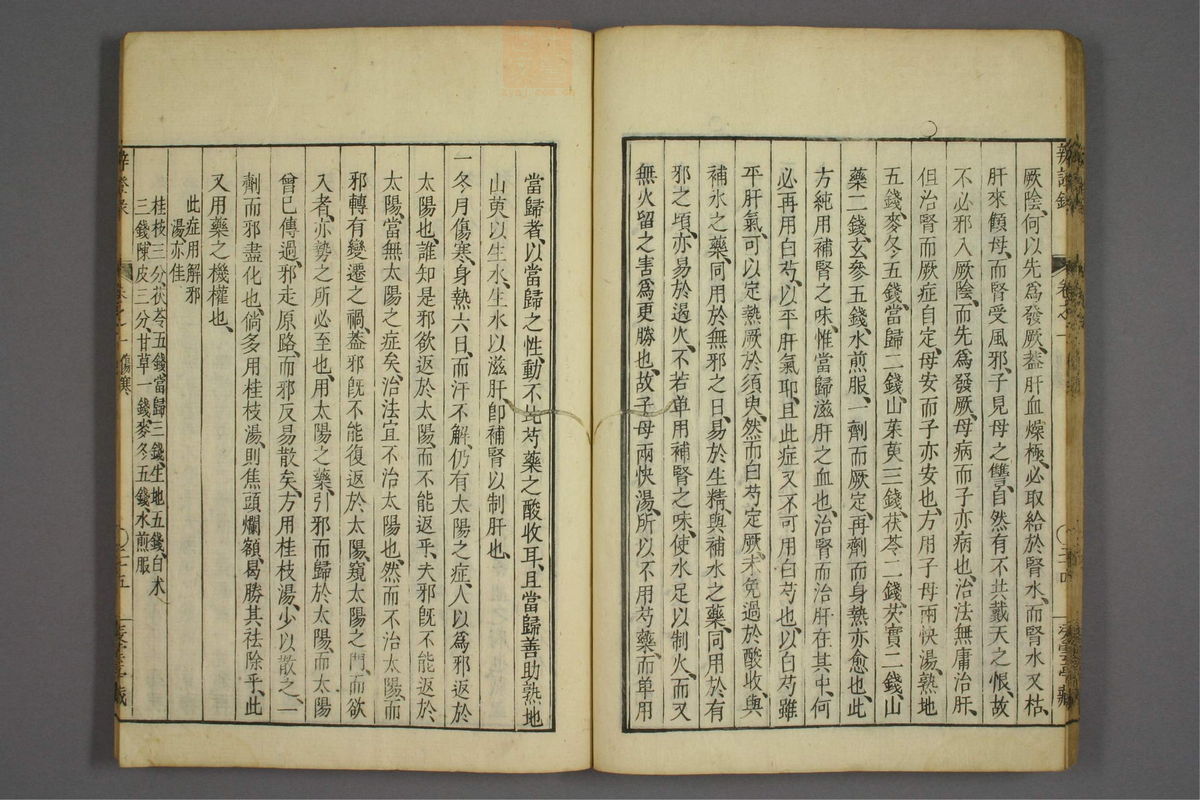 辨證錄 卷之一
厥陰何以先爲發厥蓋肝血燥極必取給於腎水而腎水又枯
肝來顧母而腎受風邪子見母之讐自然有不共戴天之恨故
不必邪入厥陰而先爲發厥母病而子亦病也治法無庸治肝
但治腎而厥症自定母安而子亦安也方用子母兩快湯熟地
五錢麥冬五錢當歸二錢山茱萸三錢茯苓二錢芡實二錢山
藥二錢玄參五錢水煎服一劑而厥定再劑而身熱亦愈也此
方純用補腎之味惟當歸滋肝之血也治腎而治肝在其中何
必再用白芍以平肝氣耶且此症又不可用白芍也以白芍雖
平肝氣可以定熱厥於須臾然而白芍定厥未免過於酸收與
補水之藥同用於無邪之日易於生精與補水之藥同用於有
邪之頃亦易於遏火不若单用補腎之味使水足以制火而又
無火留之害爲更勝也故子母兩快湯所以不用芍藥而单用
當歸者以當歸之性動不比芍藥之酸收耳且當歸善助熟地
山萸以生水生水以滋肝卽補腎以制肝也
一冬月傷寒身熱六日而汗不解仍有太陽之症人以爲邪返於
太陽也誰知是邪欲返於太陽而不能返乎夫邪旣不能返於
太陽當無太陽之症矣治法宜不治太陽也然而不治太陽而
邪轉有變遷之禍蓋邪旣不能復返於太陽窺太陽之門而欲
入者亦勢之所必至也用太陽之藥引邪而歸於太陽而太陽
曾已傳過邪走原路而邪反易散矣方用桂枝湯少以散之一
劑而邪盡化也倘多用桂枝湯則焦頭爛額曷勝其祛除乎此
又用藥之機權也
此症用解邪
湯亦佳
桂枝三分茯苓五錢當歸三錢生地五錢白术
三錢陳皮三分甘草一錢麥冬五錢水煎服
傷寒